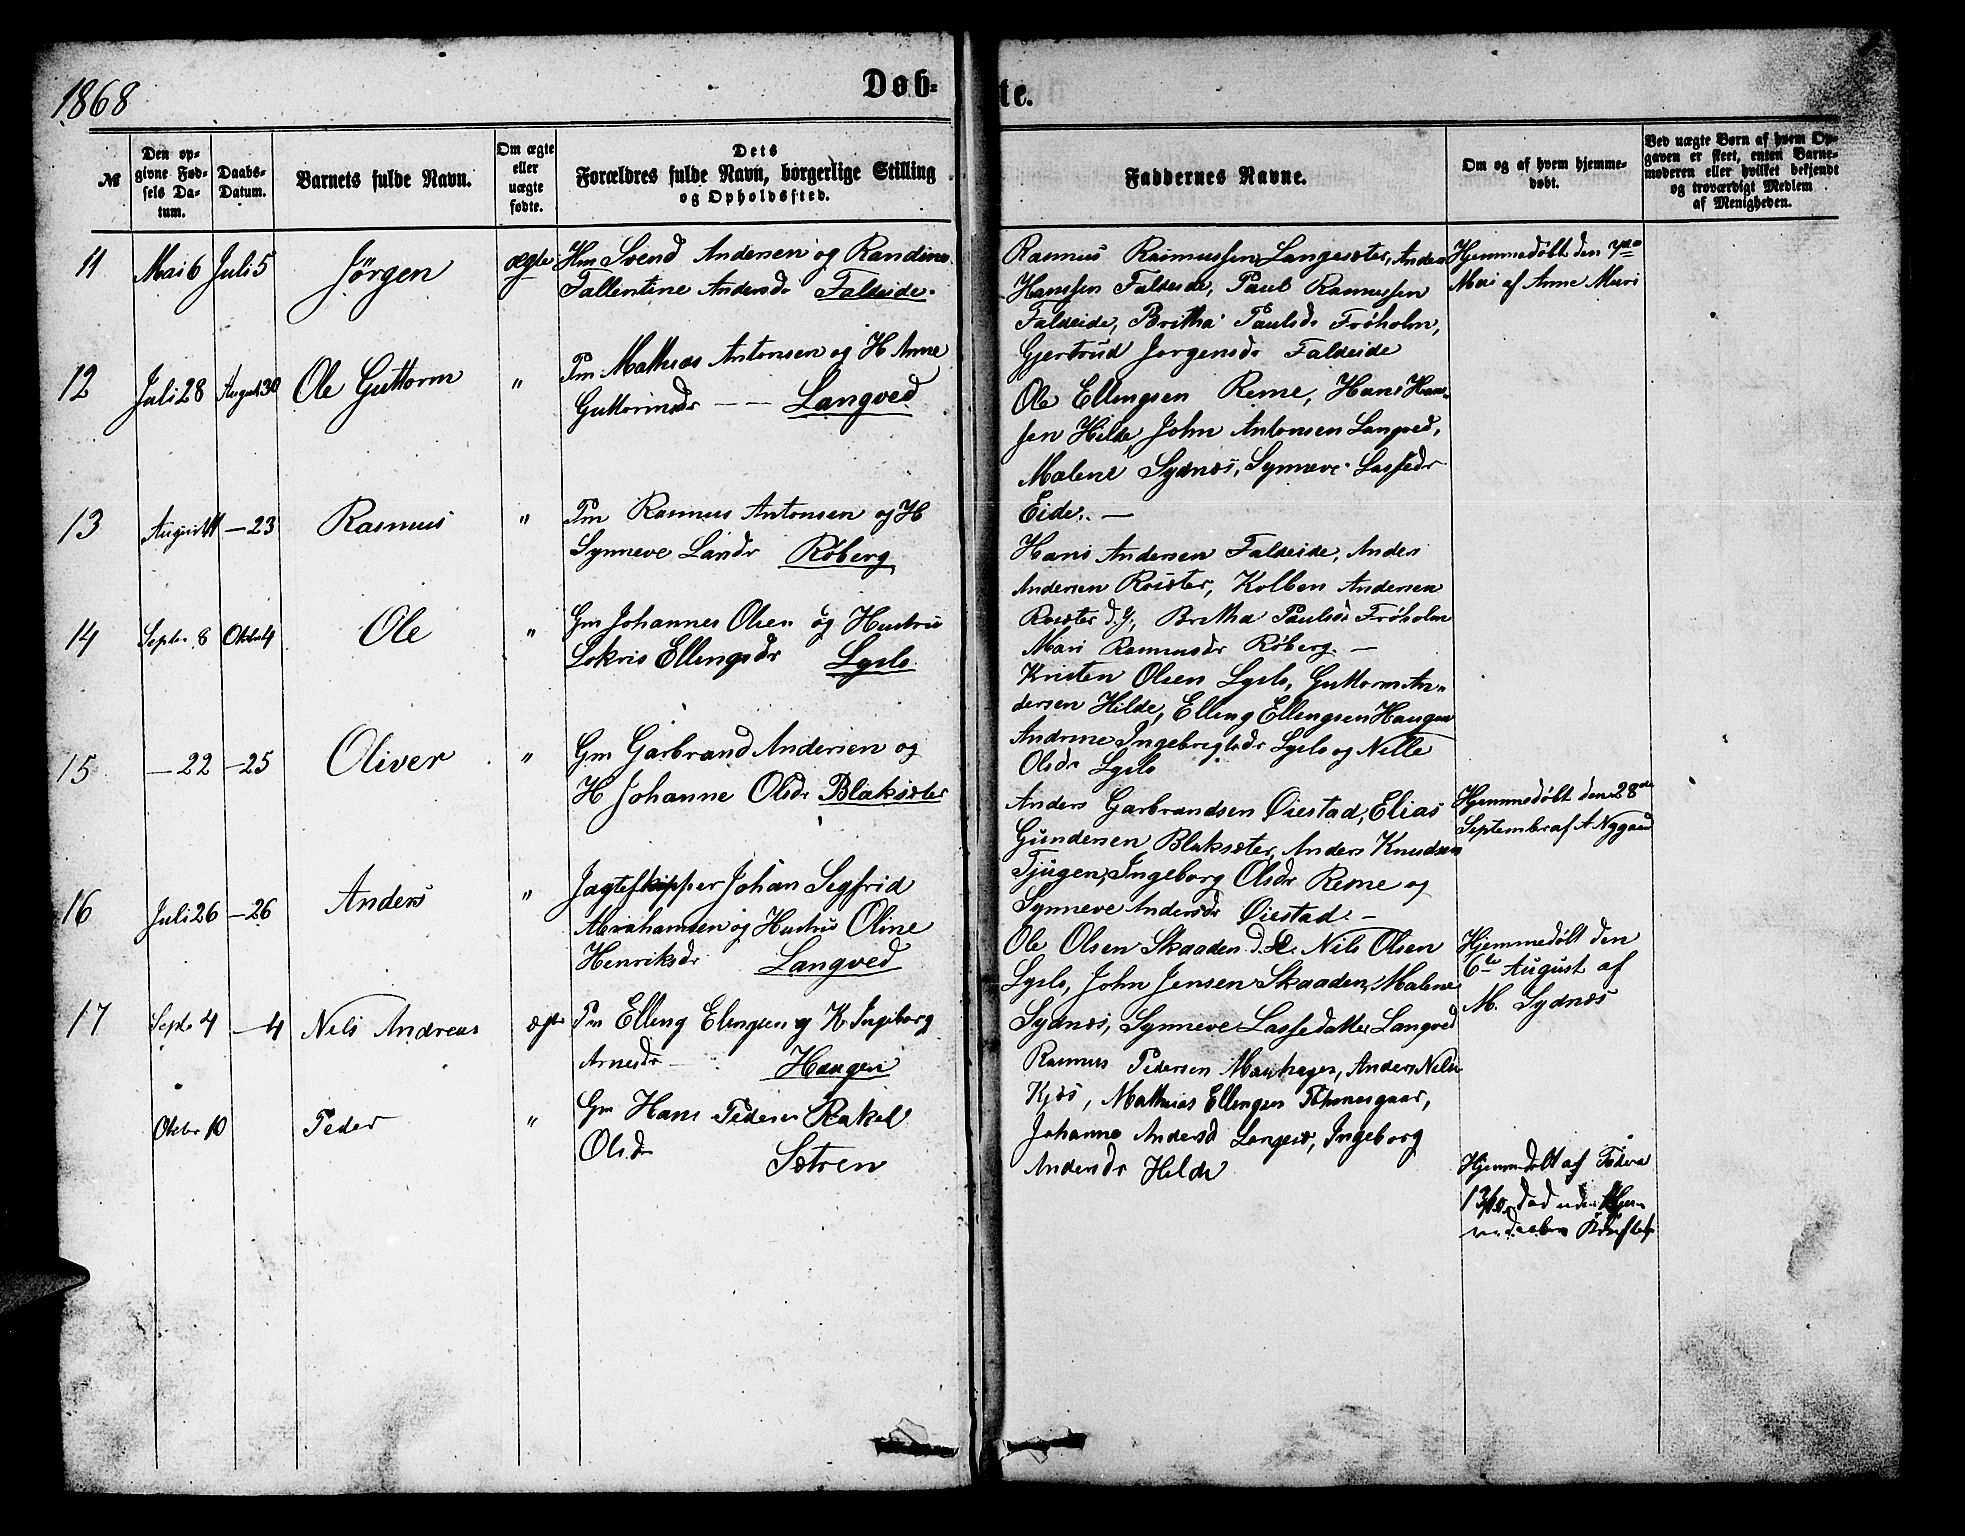 1868
Døb-
te.
№
Den op-
givne Fød-
sels Da-
tum.
Daabs-
Datum.
Barnets fulde Navn.
Om ægte
eller
uægte
fødte.
Dets
Forældres fulde Navn, borgerlige Stilling
og Opholdssted.
Faddernes Navne.
Om og af hvem hjemme-
døbt.
Ved uægte Børn af hvem Op-
gaven er skeet, enten Barne-
moderen eller hvilket bekjendt
og troværdigt Medlem
af Menigheden.
11 Mai 6 Juli 5 Jörgen ægte
Hm Svend Andersen og Randine
Tallentine Andersdr Faldeide.
Rasmus Rasmussen Langesæter, Anders
Hanssen Faldeide, Paul Rasmussen
Faldeide, Britha Paulsdr Fröholm,
Gjertrud Jørgensdr Faldeide
Hjemmedöbt den 7de
Mai af Anne Muri
12 Juli 28 August 30 Ole Guttorm "
Pm Mathias Antonsen og H Anne
Guttormsdr — — Langved
Ole Ellengsen Reme, Hans Han-
sen Hilde, John Antonsen Langved,
Malene Sydnæs, Synneve Lassedr
Eide. —
13 August 11 — 23 Rasmus "
Pm Rasmus Antonsen og H
Synneve Larsdr Röberg
Hans Andersen Faldeide, Anders
Andersen Roiseter, Kolben Andersen
Roiseter d. y, Britha Paulsdr Fröholm
Mari Rasmusdr Röberg. —
14 Septr 8 Oktbr 4 Ole "
Gm Johannes Olsen og Hustru
Lokris Ellengsdr Lyslo
Kristen Olsen Lyslo, Guttorm An-
dersen Hilde, Elling Ellingsen Haugen
Andrine Ingebrigtsdr Lyslo og Nille
Olsdr Lyslo
15 — 22 — 25 Oliver "
Gm Garbrand Andersen og
H Johanne Olsdr Blaksæter
Anders Garbrandsen Öiestad, Elias
Gundersen Blaksæter, Anders Knudsen
Tjugen, Ingeborg Olsdr Reme og
Synneve Andersdr Öiestad. —
Hjemmedöbt den 28de
September af A Nygaard
16 Juli 26 — 26 Anders "
Jagteskipper Johan Segfrid
Abrahamsen og Hustru Oline
Henriksdr Langved
Ole Olsen Skaaden d. æ. Nils Olsen
Lyslo, John Jensen Skaaden, Malene
Sydnæs, Synneve Lassedatter Langved
Hjemmedöbt den
6te August af
M. Sydnæs
17 Septr 4 — 4 Nils Andreas ægte
Pm Elling Elingsen og K. Ingeborg
Arnesdr — Haugen
Rasmus Pedersen, Anders Nils
Kjös, Mathias Ellingsen,
Johanne Andersd, Ingeborg
Andersdr Hilde
Oktbr 10 Peder "
Gm Hans Pedersen Rakel
Olsdr Sætren
Hjemmedöbt af Faderen
13/10, död uden Hjem-